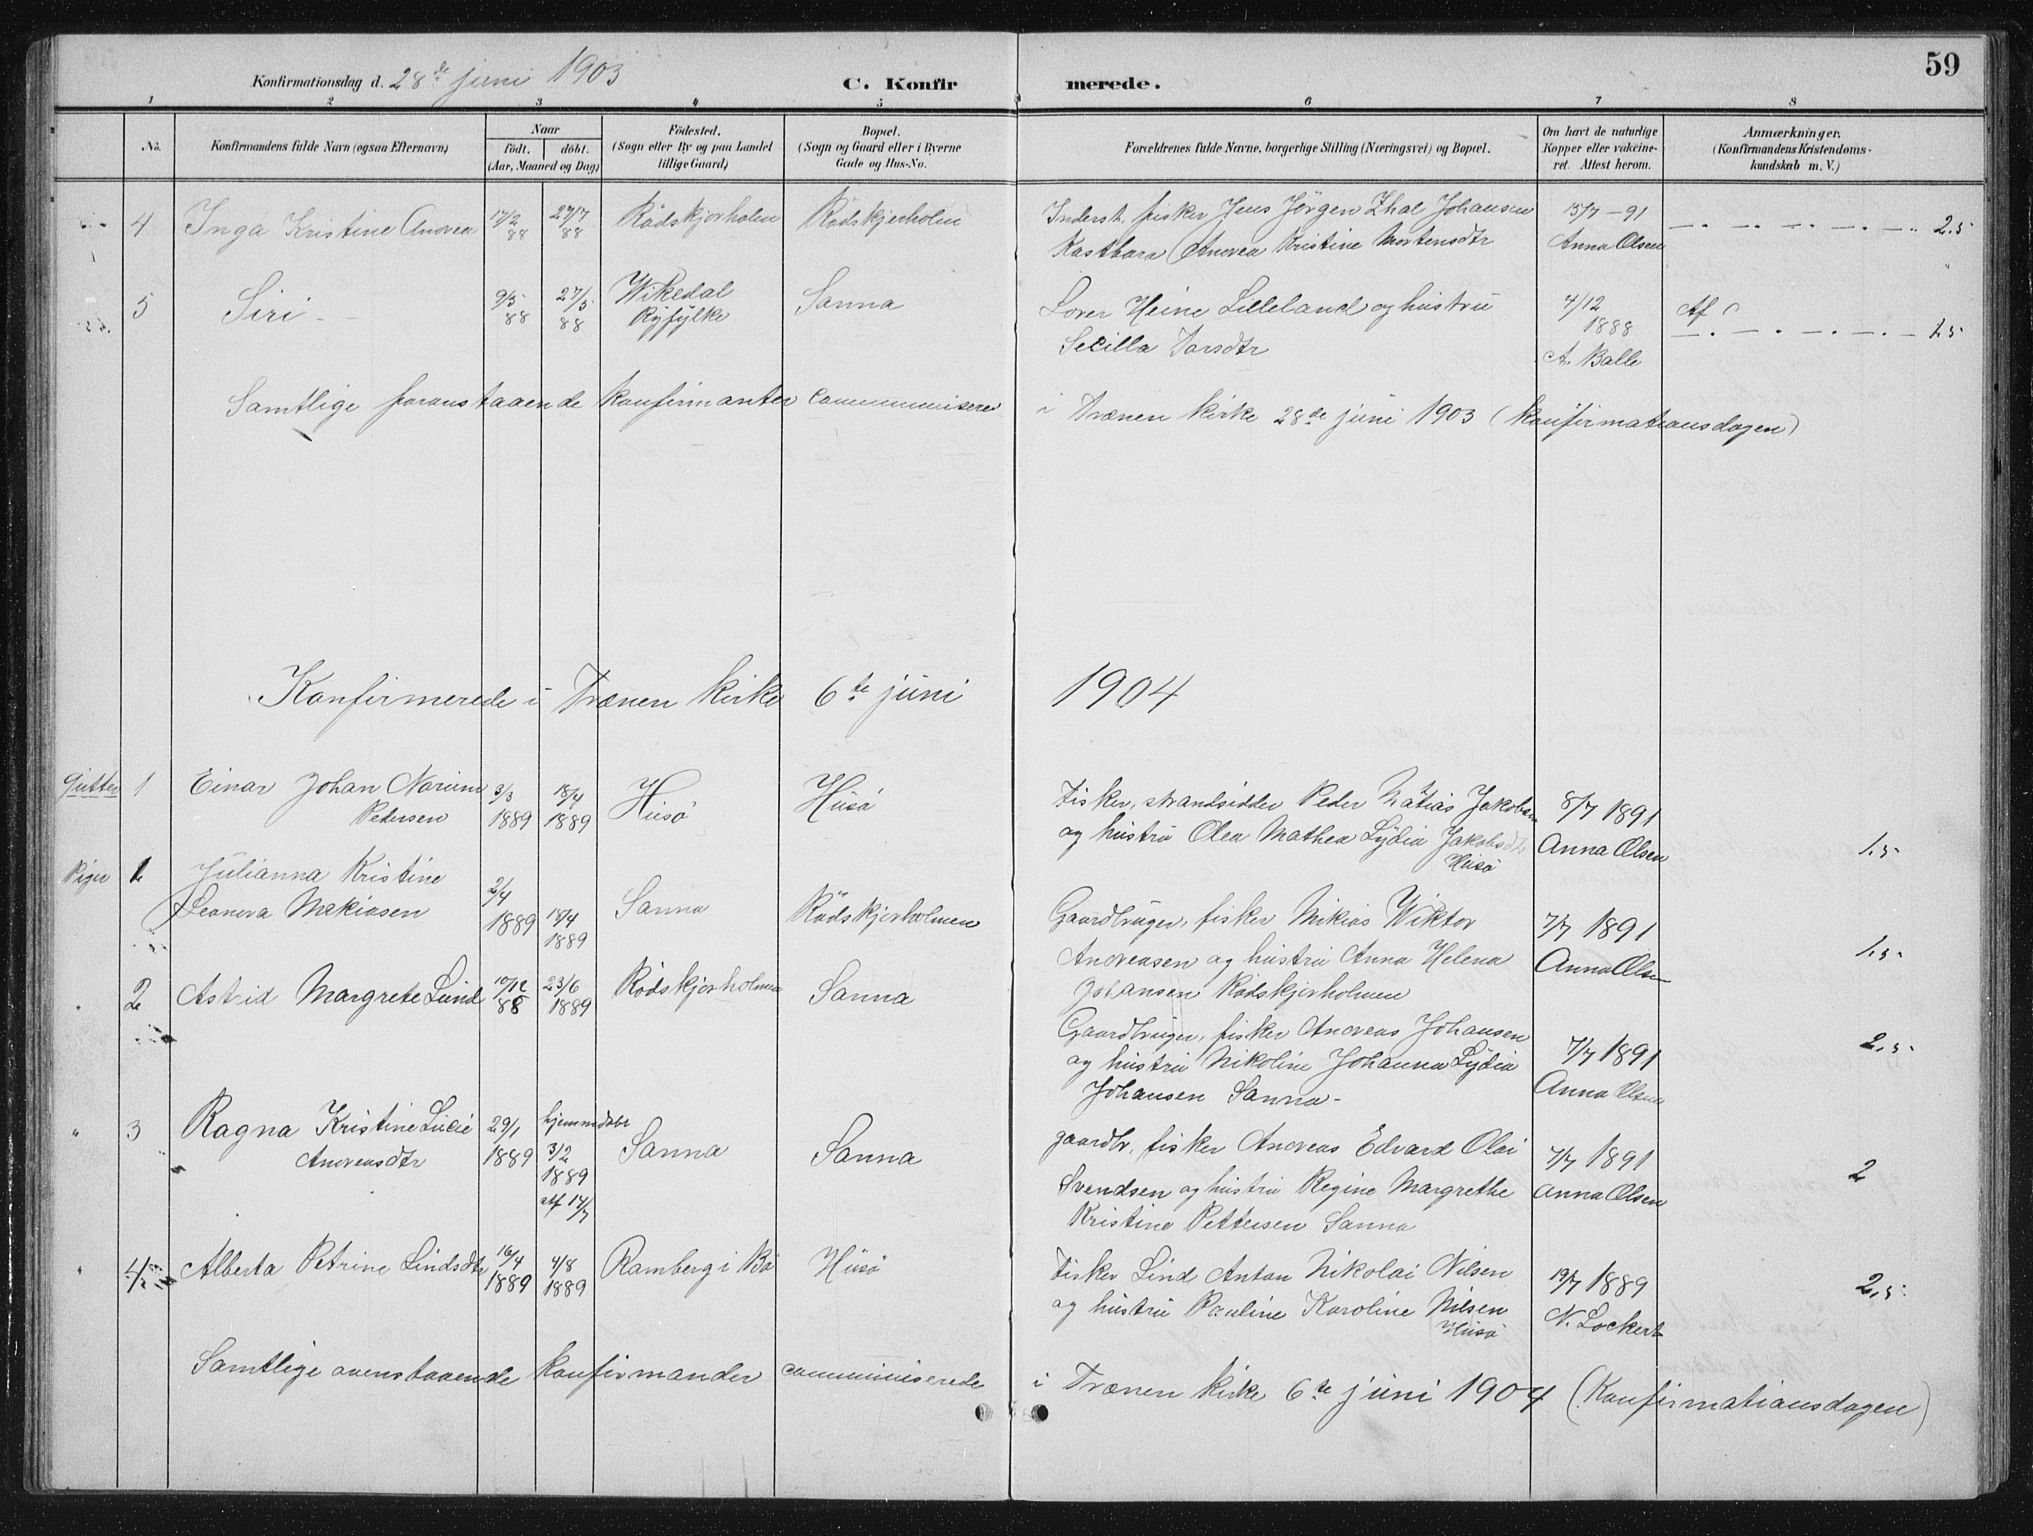 59
Konfirmationsdag d. 28de juni 1903 C. Konfirmerede.
1 2 3 4 5 6 7 8
No.
Konfirmandens fulde Navn (ogsaa Efternavn)
Naar
födt. döbt.
(Aar, Maaned og Dag)
Födested.
(Sogn eller By og paa Landet
tillige Gaard)
Bopæl.
(Sogn og Gaard eller i Byerne
Gade og Hus-No.
Forældrenes fulde Navne, borgerlige Stilling (Næringsvei) og Bopæl.
Om havt de naturlige
Kopper eller vakcine-
ret. Attest herom.
Anmærkninger.
(Konfirmandens Kristendoms-
kundskab m. V.)
4 Inga Kristine Andrea 17/2 88 27/7 88 Rödskjærholm Rödskjærholm Inderst, fisker Jens Jörgen Johansen 15/7 - 91 2.5
Andrea Kristine Mortensdtr Anna Olsen
5 Siri 9/5 88 27/5 88 Wikedal Ryfylke Sanna Heine Lilleland og hustru 4/12 1888 1.5
Secilla A. Balle
Samtlige foranstaaende konfirmanter communisere i Trænen kirke 28de juni 1903 (konfirmationsdagen)
Konfirmerede i Trænen kirke 6te juni 1904
Gutter 1 Einar Johan Norum 3/3 1889 18/4 1889 Husö Husö Fisker, strandsidder Peder Matias Jakobsen 8/7 1891
Pedersen og hustru Olea Mathea Lydia Jakobsdtr Anna Olsen 1.5
Husö
Piger 1 Julianna Kristine
Leonora Mikiasen 2/4 1889 18/4 1889 Sanna Rödskjærholmen Gaardbruger, fisker Mikias Wiktor 7/7 1891
Andreasen og hustru Anna Helena Anna Olsen 1.5
Johansen Rödskjærholmen
" 2 Astrid Margrete Lund 10/12 88 23/6 1889 Rödskjærholmen Sanna
Gaardbruger, fisker Andreas Johansen
og hustru Nikoline Johanna Lydia 7/7 1891 2.5
Johansen Sanna - Anna Olsen
" 3 Ragna Kristine Lucie 29/1 1889 hjemmedöbt 3/2 1889 Sanna Sanna gaardbr. fisker Andreas Edvard Olai 7/7 1891
Andreasdtr Svendsen og hustru Regine Margrethe Anna Olsen 2
Kristine Pettersen Sanna
" 4 Alberta Petrine Lindsdtr 16/4 1889 4/8 1889 Ramberg i Bö Husö Fisker Lind Anton Nikolai Nilsen 19/7 1889 2,5
og hustru Pauline Karoline Nilsen N. Lockert
Husö
Samtlige ovenstaaende konfirmander communiserede i Trænen kirke 6te juni 1904 (Konfirmationsdagen)